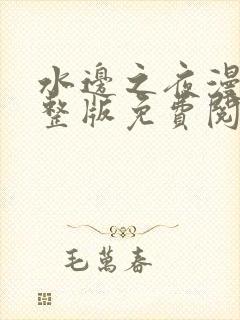 水邊之夜漫
整版免費閱
毛萬春